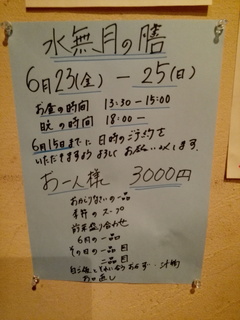 水無月の膳
6月23(金) — 25(日)
お昼の時間 13:30-15:00
晩の時間 18:00—
6月15日までに日時のご予約を
いただきますよう よろしく お願いします。
お一人様 3000円
おからないの一品
季節のスープ
前菜盛り合わせ
6月の一品
その日の一品目
二品目
白ご飯と
お口直し